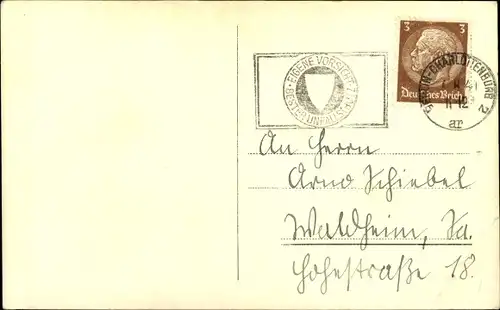 3 3
Deutsches Reich
EIGENE VORSICHT
BESTER UNFALLSCHUTZ
BERLIN-CHARLOTTENBURG 2
11-12
ar
An Herrn
Arno Schiebel
Waldheim, Sa.
Hohestraße 18.